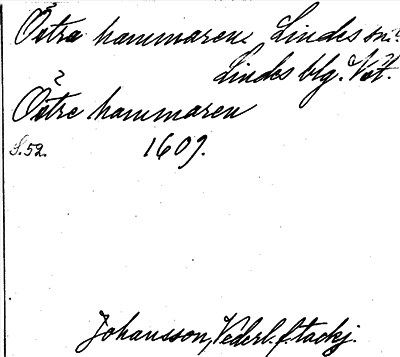 Östra hammaren. Lindes sn.
Lindes blg. Vst.
Östre hammaren
S. 52. 1609.
Johansson, Vederl. f. tackj.